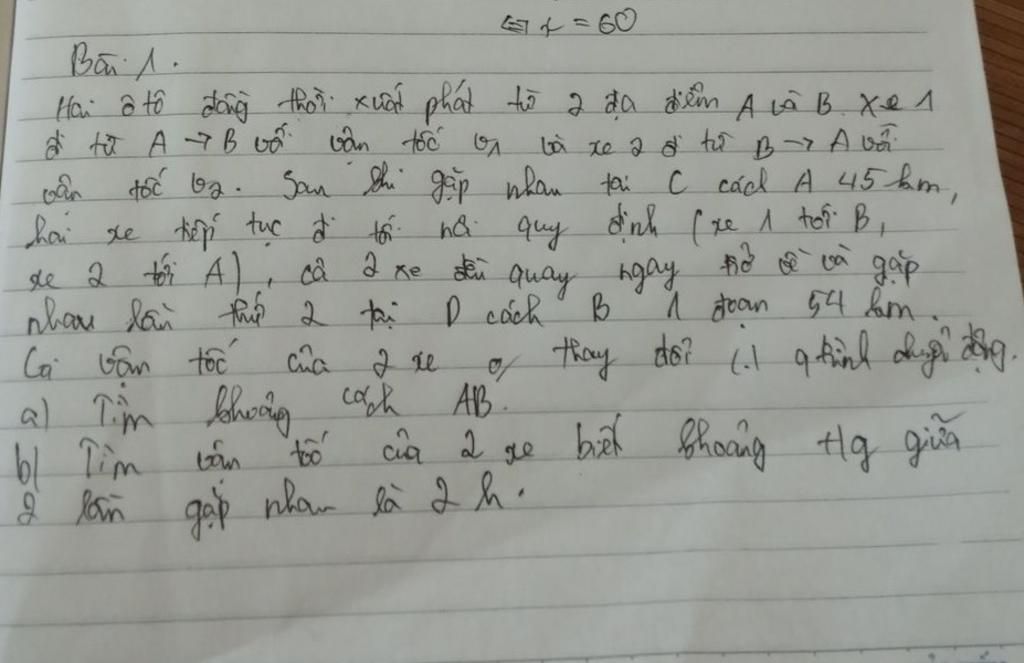 ⇔ x = 60
Bài 1.
Hai ô tô đồng thời xuất phát từ 2 địa điểm A và B. Xe 1
đi từ A → B với vận tốc v1 và xe 2 đi từ B → A với
vận tốc v2. Sau khi gặp nhau tại C cách A 45 km,
hai xe tiếp tục đi tới nơi quy định (xe 1 tới B,
xe 2 tới A), cả 2 xe đều quay ngay trở về và gặp
nhau lần thứ 2 tại D cách B 1 đoạn 54 km.
Coi vận tốc của 2 xe o/ thay đổi (.) q trình chuyển động.
a) Tìm khoảng cách AB.
b) Tìm vận tốc của 2 xe biết khoảng tg giữa
2 lần gặp nhau là 2 h.